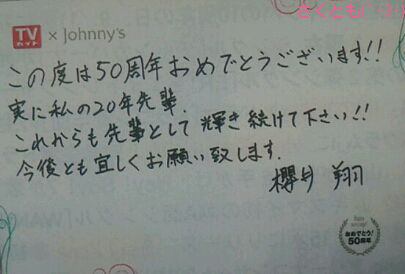 さくとも(^-^)
TV ガイド × Johnny's
この度は50周年おめでとうございます!!
実に私の20年先輩.
これからも先輩として輝き続けて下さい!!
今後とも宜しくお願い致します.
櫻井 翔
おめでとう!
50周年